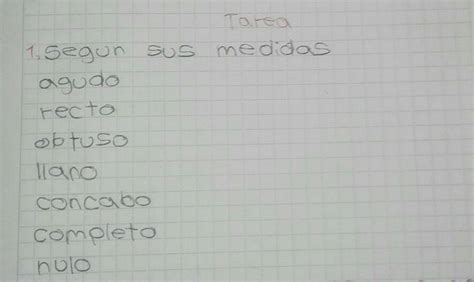 Tarea
1. Segun sus medidas
agudo
recto
obtuso
llano
concabo
completo
nulo